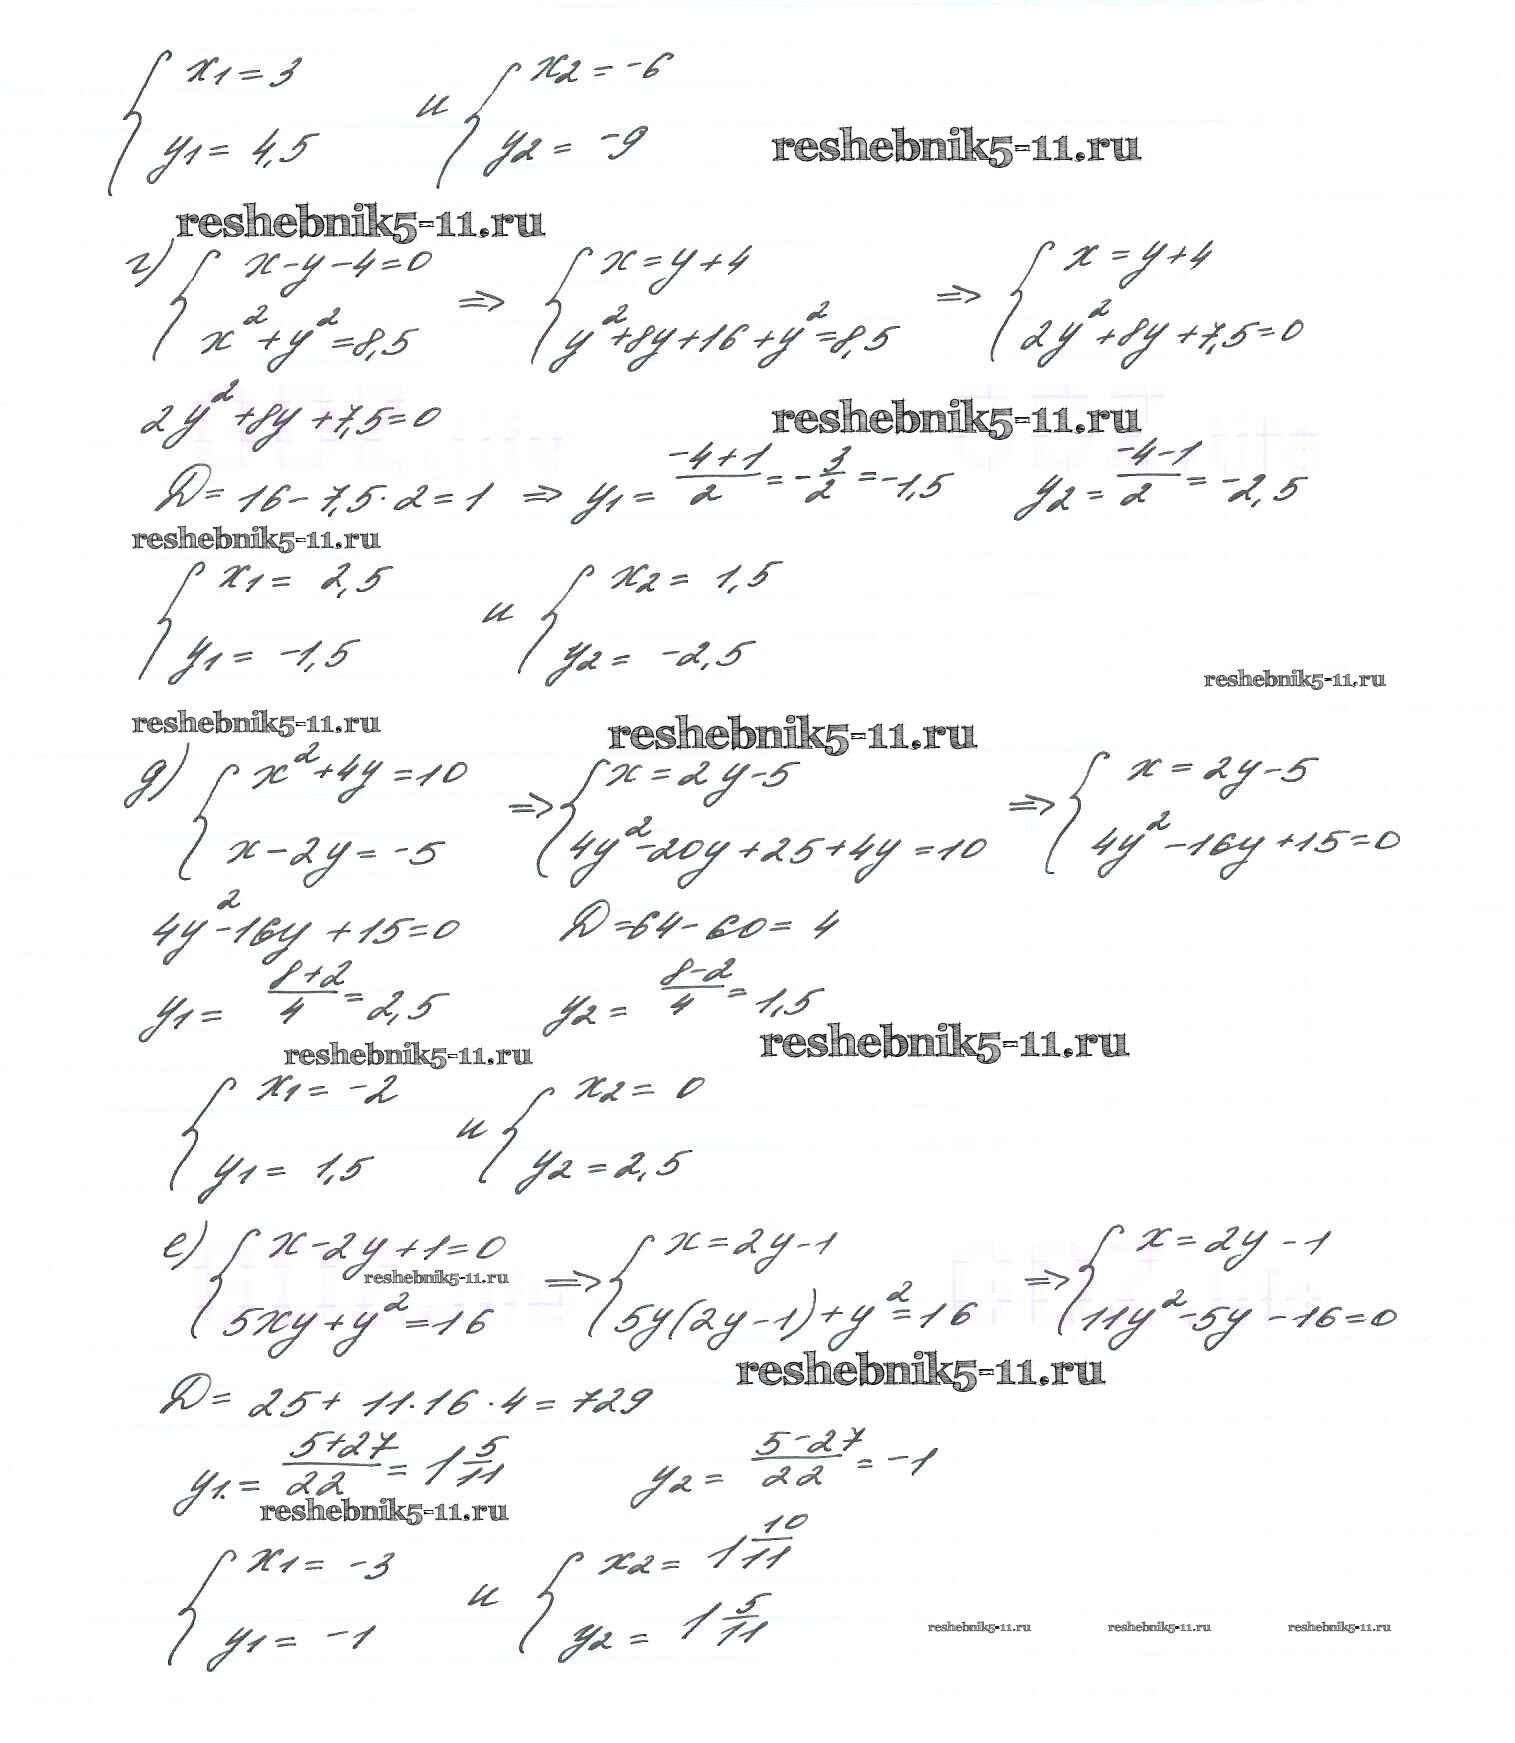 { x1 = 3 и { x2 = -6
y1 = 4,5 y2 = -9
reshebnik5-11.ru
reshebnik5-11.ru
г) { x-y-4=0 => { x=y+4 => { x=y+4
x²+y²=8,5 y²+8y+16+y²=8,5 2y²+8y+7,5=0
2y²+8y+7,5=0 reshebnik5-11.ru
D=16-7,5·2=1 => y1= (-4+1)/2 = -3/2 = -1,5 y2= (-4-1)/2 = -2,5
reshebnik5-11.ru
{ x1= 2,5 и { x2= 1,5
y1= -1,5 y2= -2,5
reshebnik5-11.ru
reshebnik5-11.ru reshebnik5-11.ru
д) { x²+4y=10 => { x=2y-5 => { x=2y-5
x-2y=-5 4y²-20y+25+4y=10 4y²-16y+15=0
4y²-16y+15=0 D=64-60=4
y1= (8+2)/4 = 2,5 y2= (8-2)/4 = 1,5
reshebnik5-11.ru reshebnik5-11.ru
{ x1= -2 и { x2= 0
y1= 1,5 y2= 2,5
е) { x-2y+1=0 => { x=2y-1 => { x=2y-1
reshebnik5-11.ru
5xy+y²=16 5y(2y-1)+y²=16 11y²-5y-16=0
reshebnik5-11.ru
D= 25+ 11·16·4=729
y1.= (5+27)/22 = 1 5/11 y2= (5-27)/22 = -1
reshebnik5-11.ru
{ x1= -3 и { x2= 1 10/11
y1= -1 y2= 1 5/11
reshebnik5-11.ru reshebnik5-11.ru reshebnik5-11.ru